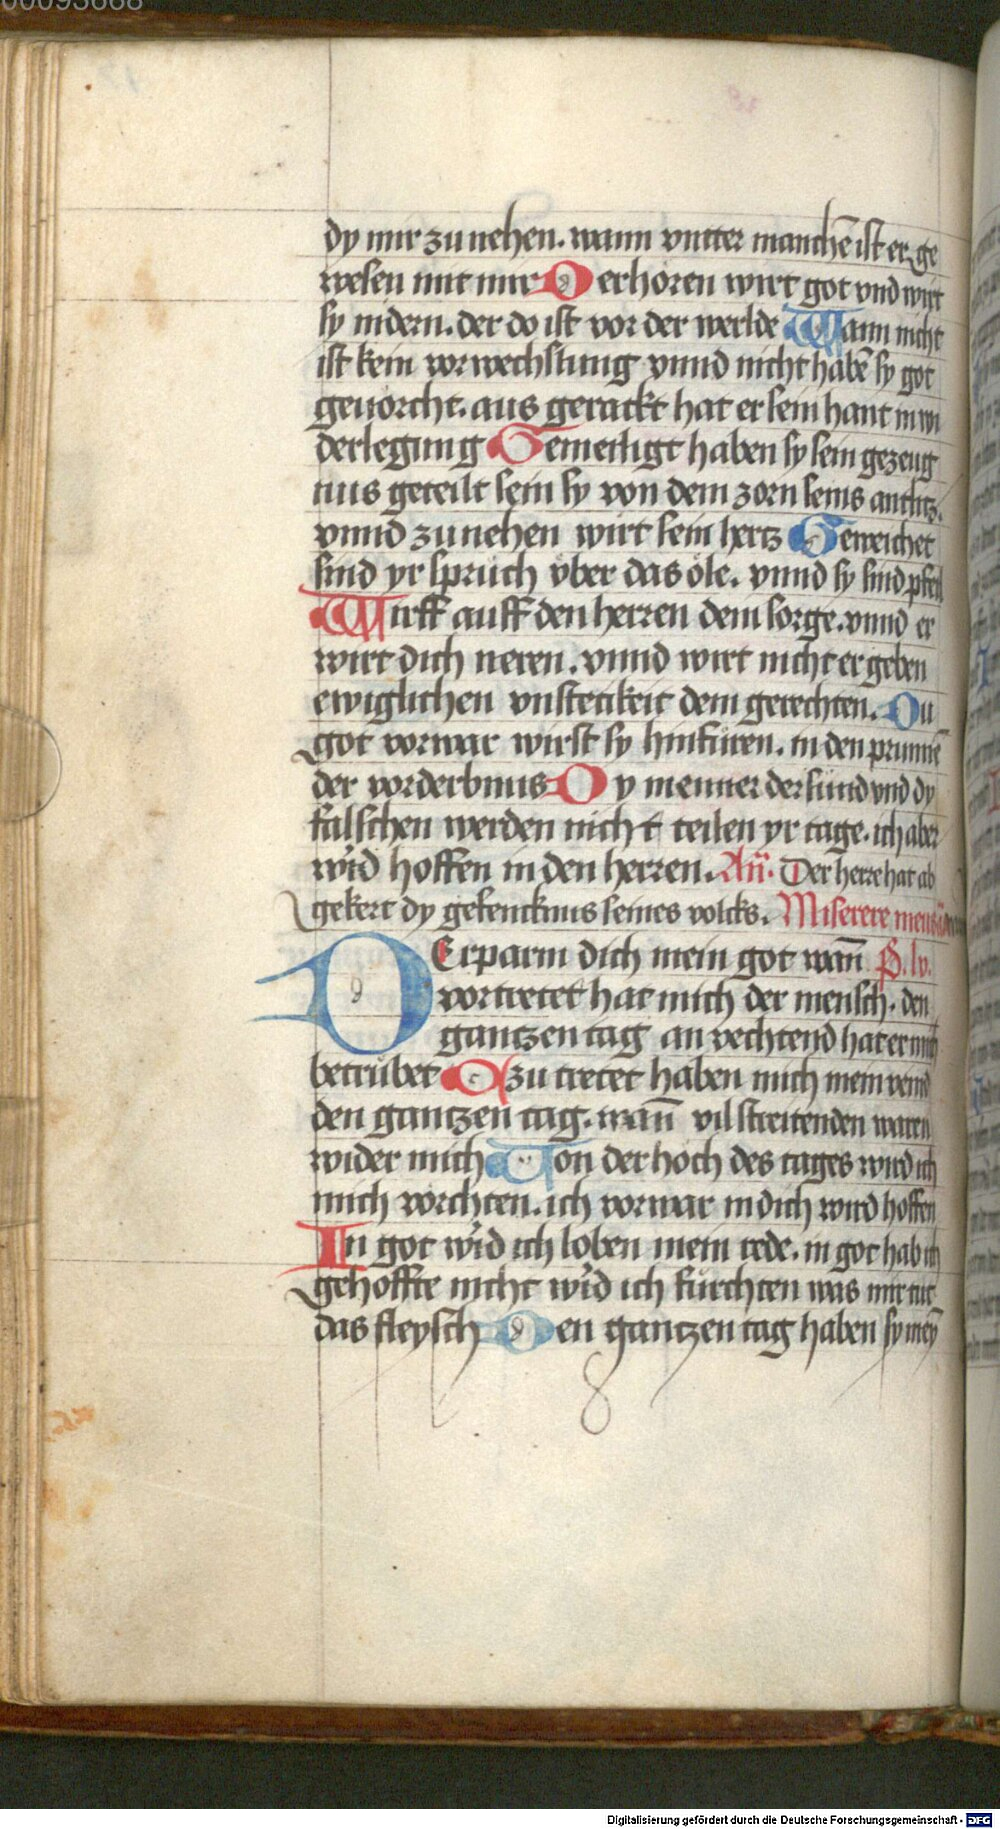 00093668
dy mir zu nehen. wann vnter manchē ist er ge
wesen mit mir Derhoren wirt got vnd wirt
sy nidern. der do ist vor der werlde Wann nicht
ist kein vorwechslung vnnd nicht habē sy got
geuorcht. aus gerackt hat er sein hant in wi
derlegung Gemeiligt haben sy sein gezeug
nus geteilt sein sy von dem zorn seins antlitz.
vnnd zu nehen wirt sein hertz Geweichet
sind yr spruch vber das öle. vnnd sy sind pfeil
Wirff auff den herren dein sorge. vnnd er
wirt dich neren. vnnd wirt nicht er geben
ewiglichen vnstetikeit dem gerechten. Du
got vorwar wirst sy hinfüren. in den prunnē
der vorderbnus Dy menner der sünd vnd dy
falschen werden nicht teilen yr tage. ich aber
wird hoffen in den herren. Añ. Der herre hat ab
gekert dy gefencknus seines volcks. Miserere mei
DErparm dich mein got wañ P. lv.
vortretet hat mich der mensch. den
gantzen tag an vechtend hat er mich
betrübet Czu tretet haben mich mein veind
den gantzen tag. wañ vil streitenden waren
wider mich Von der hoch des tages wird ich
mich vorchten. ich vorwar in dich wird hoffen
In got wird ich loben mein rede. in got hab ich
gehoffte nicht wird ich fürchten was mir tut
das fleysch Den gantzen tag haben sy meȳ
Digitalisierung gefördert durch die Deutsche Forschungsgemeinschaft - DFG